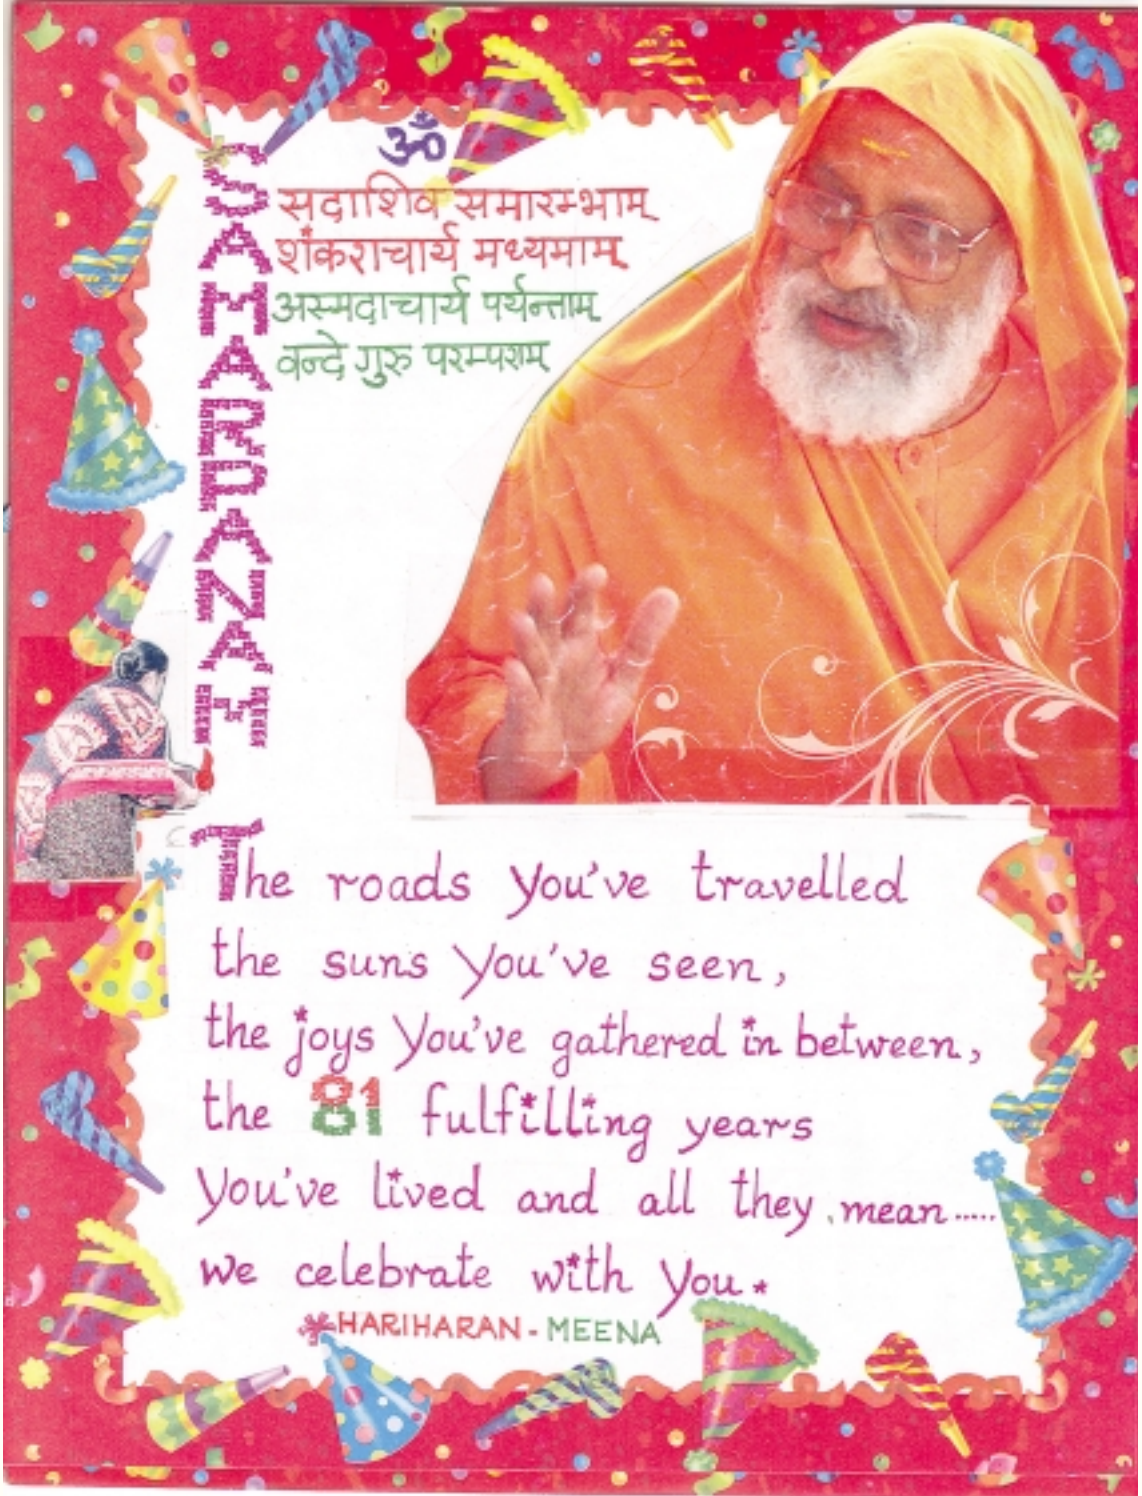 ॐ
सदाशिव समारम्भाम्
शंकराचार्य मध्यमाम्
अस्मदाचार्य पर्यन्ताम्
वन्दे गुरु परम्पराम्
The roads you've travelled
the suns you've seen,
the joys you've gathered in between,
the 81 fulfilling years
you've lived and all they mean.....
we celebrate with you.
HARIHARAN - MEENA